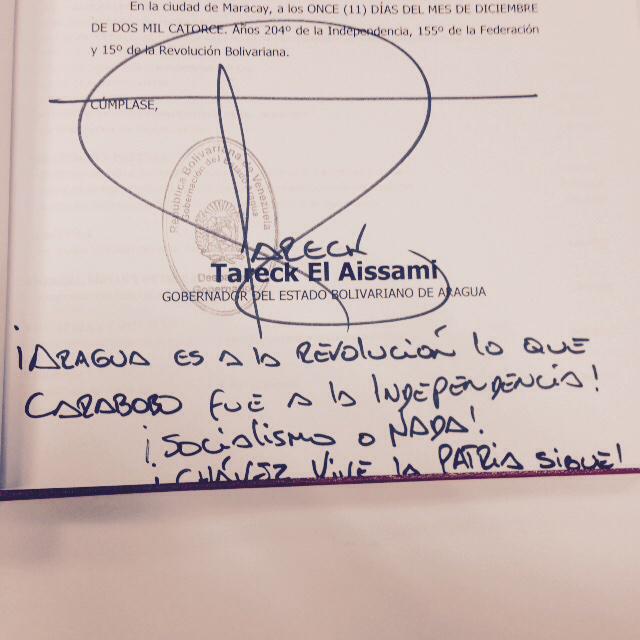 En la ciudad de Maracay, a los ONCE (11) DÍAS DEL MES DE DICIEMBRE
DE DOS MIL CATORCE. Años 204º de la Independencia, 155º de la Federación
y 15º de la Revolución Bolivariana.
CÚMPLASE,
República Bolivariana de Venezuela
Gobernación del Estado Aragua
Despacho
Gobernador
TARECK
Tareck El Aissami
GOBERNADOR DEL ESTADO BOLIVARIANO DE ARAGUA
¡ARAGUA ES A LA REVOLUCIÓN LO QUE
CARABOBO FUE A LA INDEPENDENCIA!
¡SOCIALISMO O NADA!
¡CHÁVEZ VIVE LA PATRIA SIGUE!